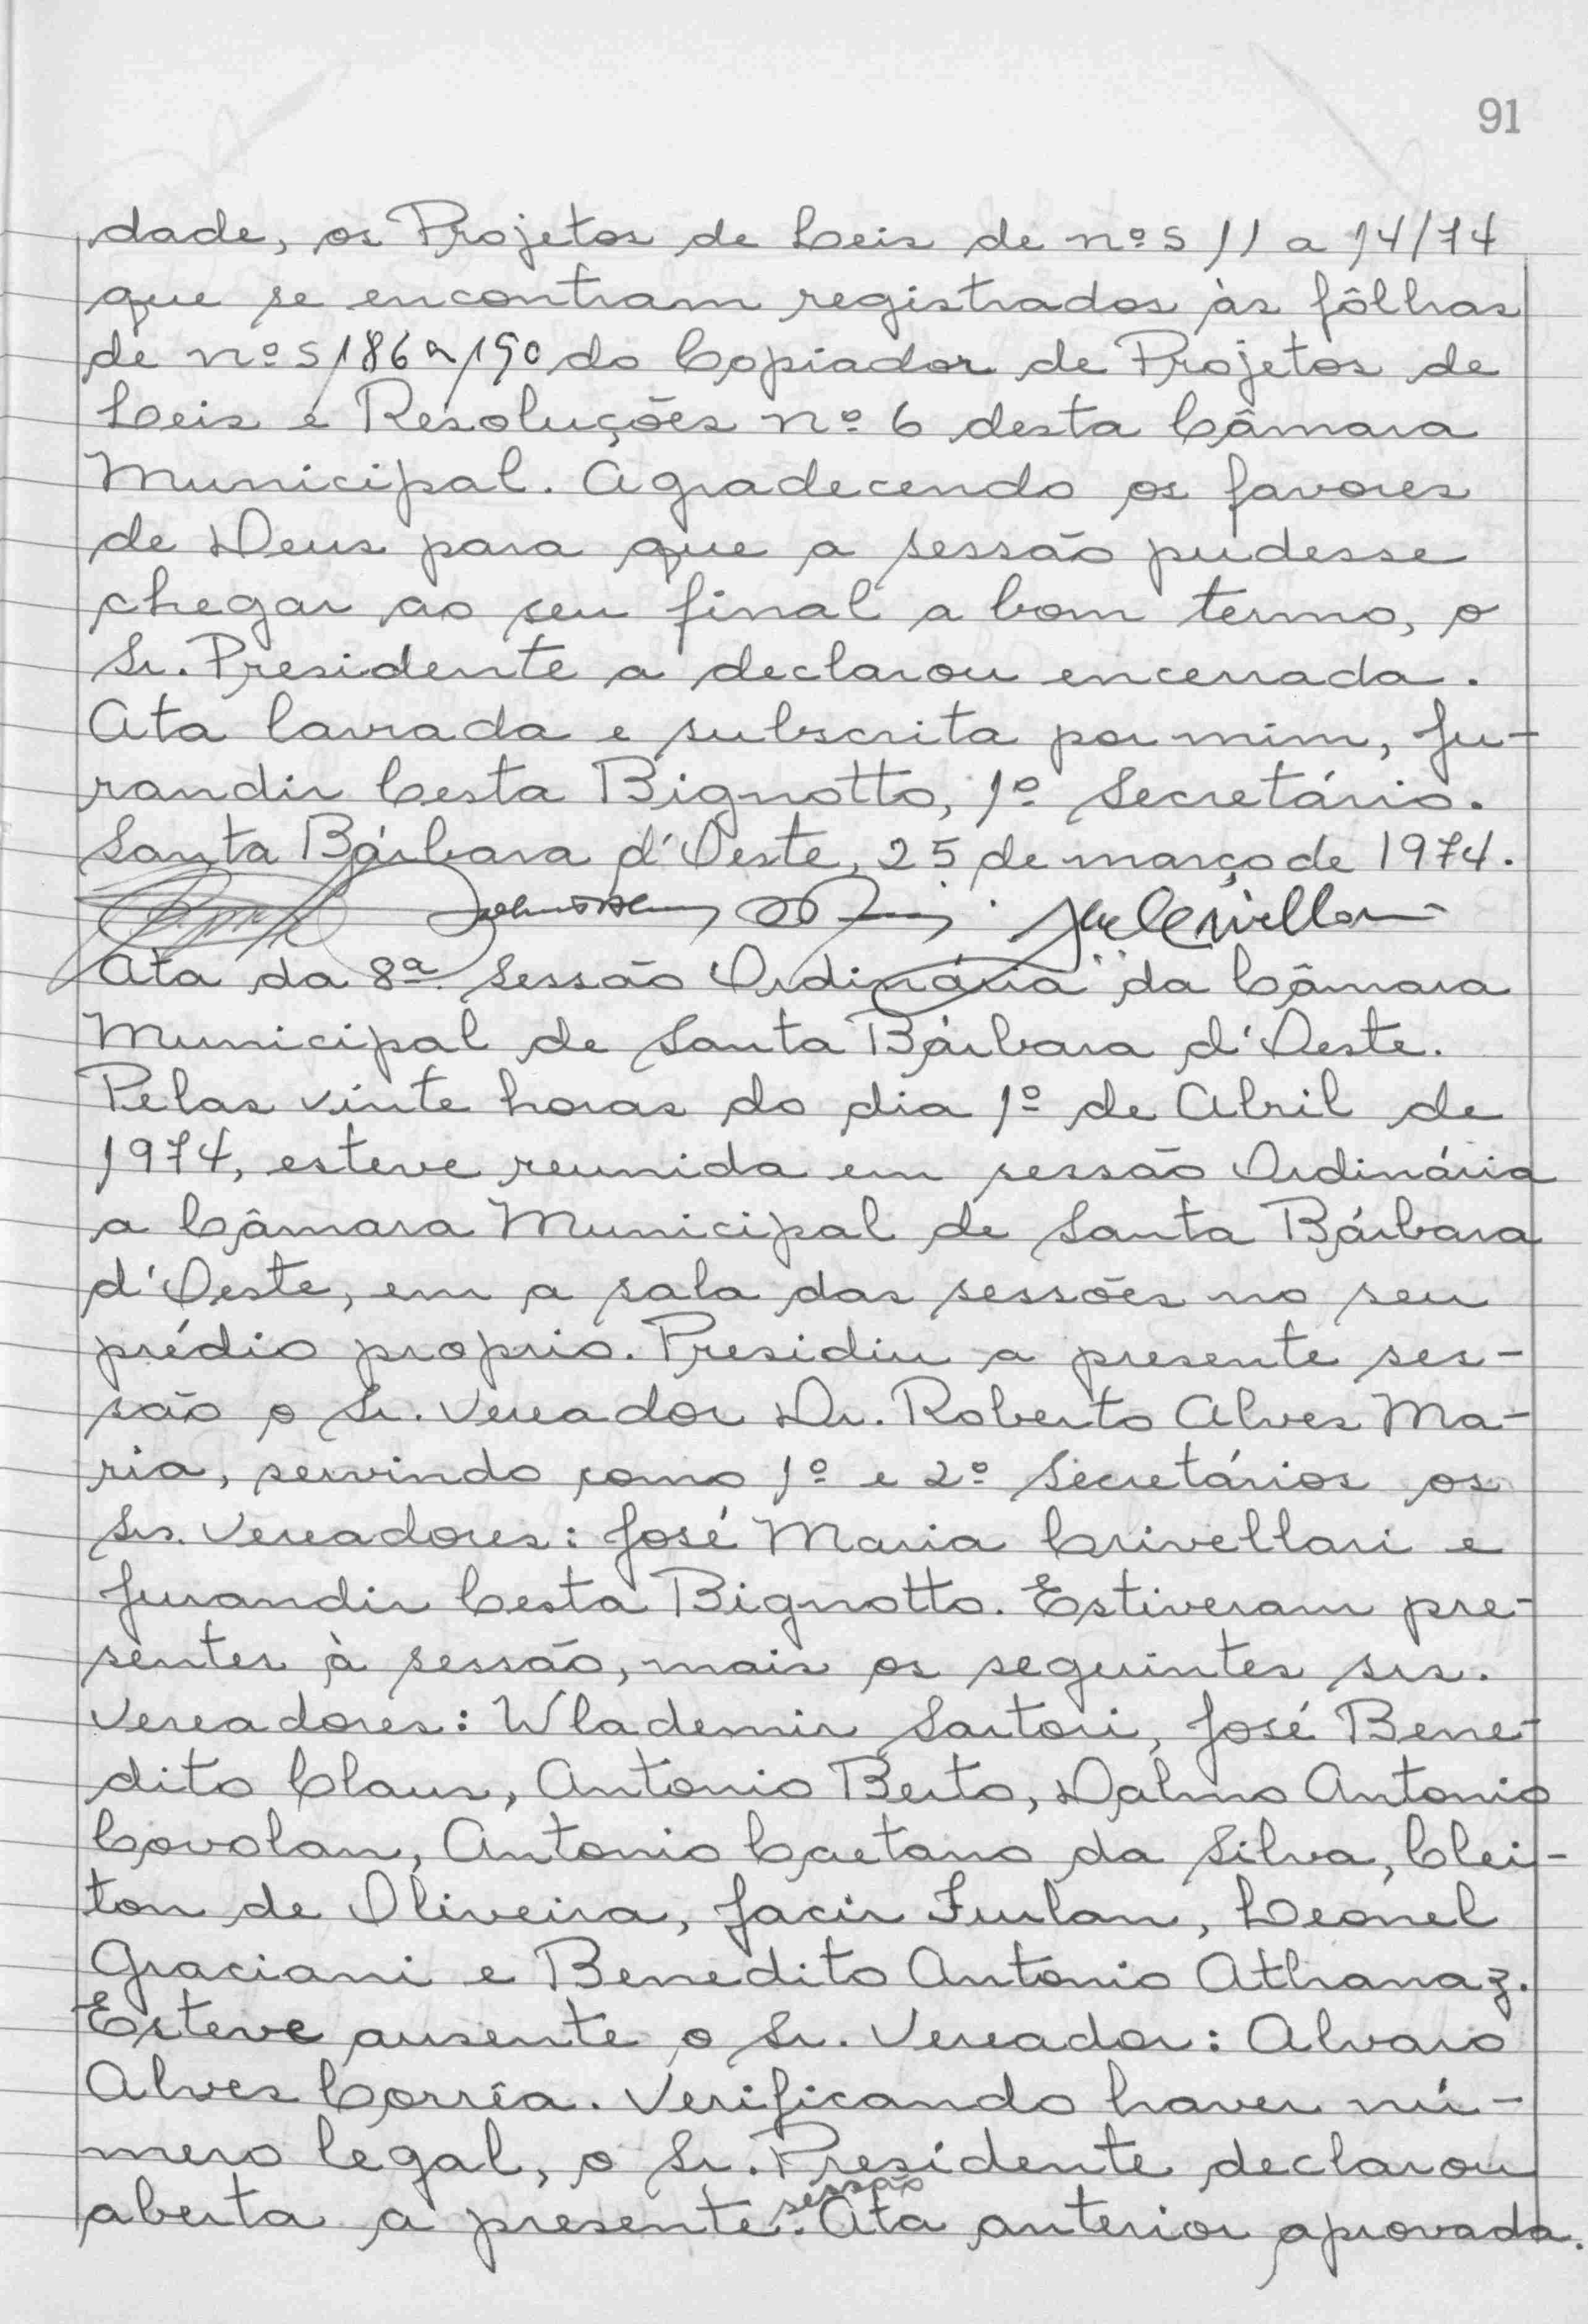 91
dade, os Projetos de Leis de nºs 11 a 14/74
que se encontram registrados às fôlhas
de nºs 186 a 190 do Copiador de Projetos de
Leis e Resoluções nº 6 desta Câmara
Municipal. Agradecendo os favores
de Deus para que a sessão pudesse
chegar ao seu final a bom termo, o
Sr. Presidente a declarou encerrada.
Ata lavrada e subscrita por mim, Ju-
randir Cesta Bignotto, 1º Secretário.
Santa Bárbara d'Oeste, 25 de março de 1974.
Ata da 8ª Sessão Ordinária da Câmara
Municipal de Santa Bárbara d'Oeste.
Pelas vinte horas do dia 1º de Abril de
1974, esteve reunida em sessão Ordinária
a Câmara Municipal de Santa Bárbara
d'Oeste, em a sala das sessões no seu
prédio proprio. Presidiu a presente ses-
são o Sr. Vereador Dr. Roberto Alves Ma-
ria, servindo como 1º e 2º Secretários os
Srs. Vereadores: José Maria Crivellari e
Jurandir Cesta Bignotto. Estiveram pre-
sentes à sessão, mais os seguintes srs.
Vereadores: Wlademir Sartori, José Bene-
dito Claus, Antonio Berto, Dalmo Antonio
Covolan, Antonio Caetano da Silva, Clei-
ton de Oliveira, Jacir Furlan, Leonel
Graciani e Benedito Antonio Athanaz.
Esteve ausente o Sr. Vereador: Alvaro
Alves Corrêa. Verificando haver nú-
mero legal, o Sr. Presidente declarou
aberta a presente sessão. Ata anterior aprovada.